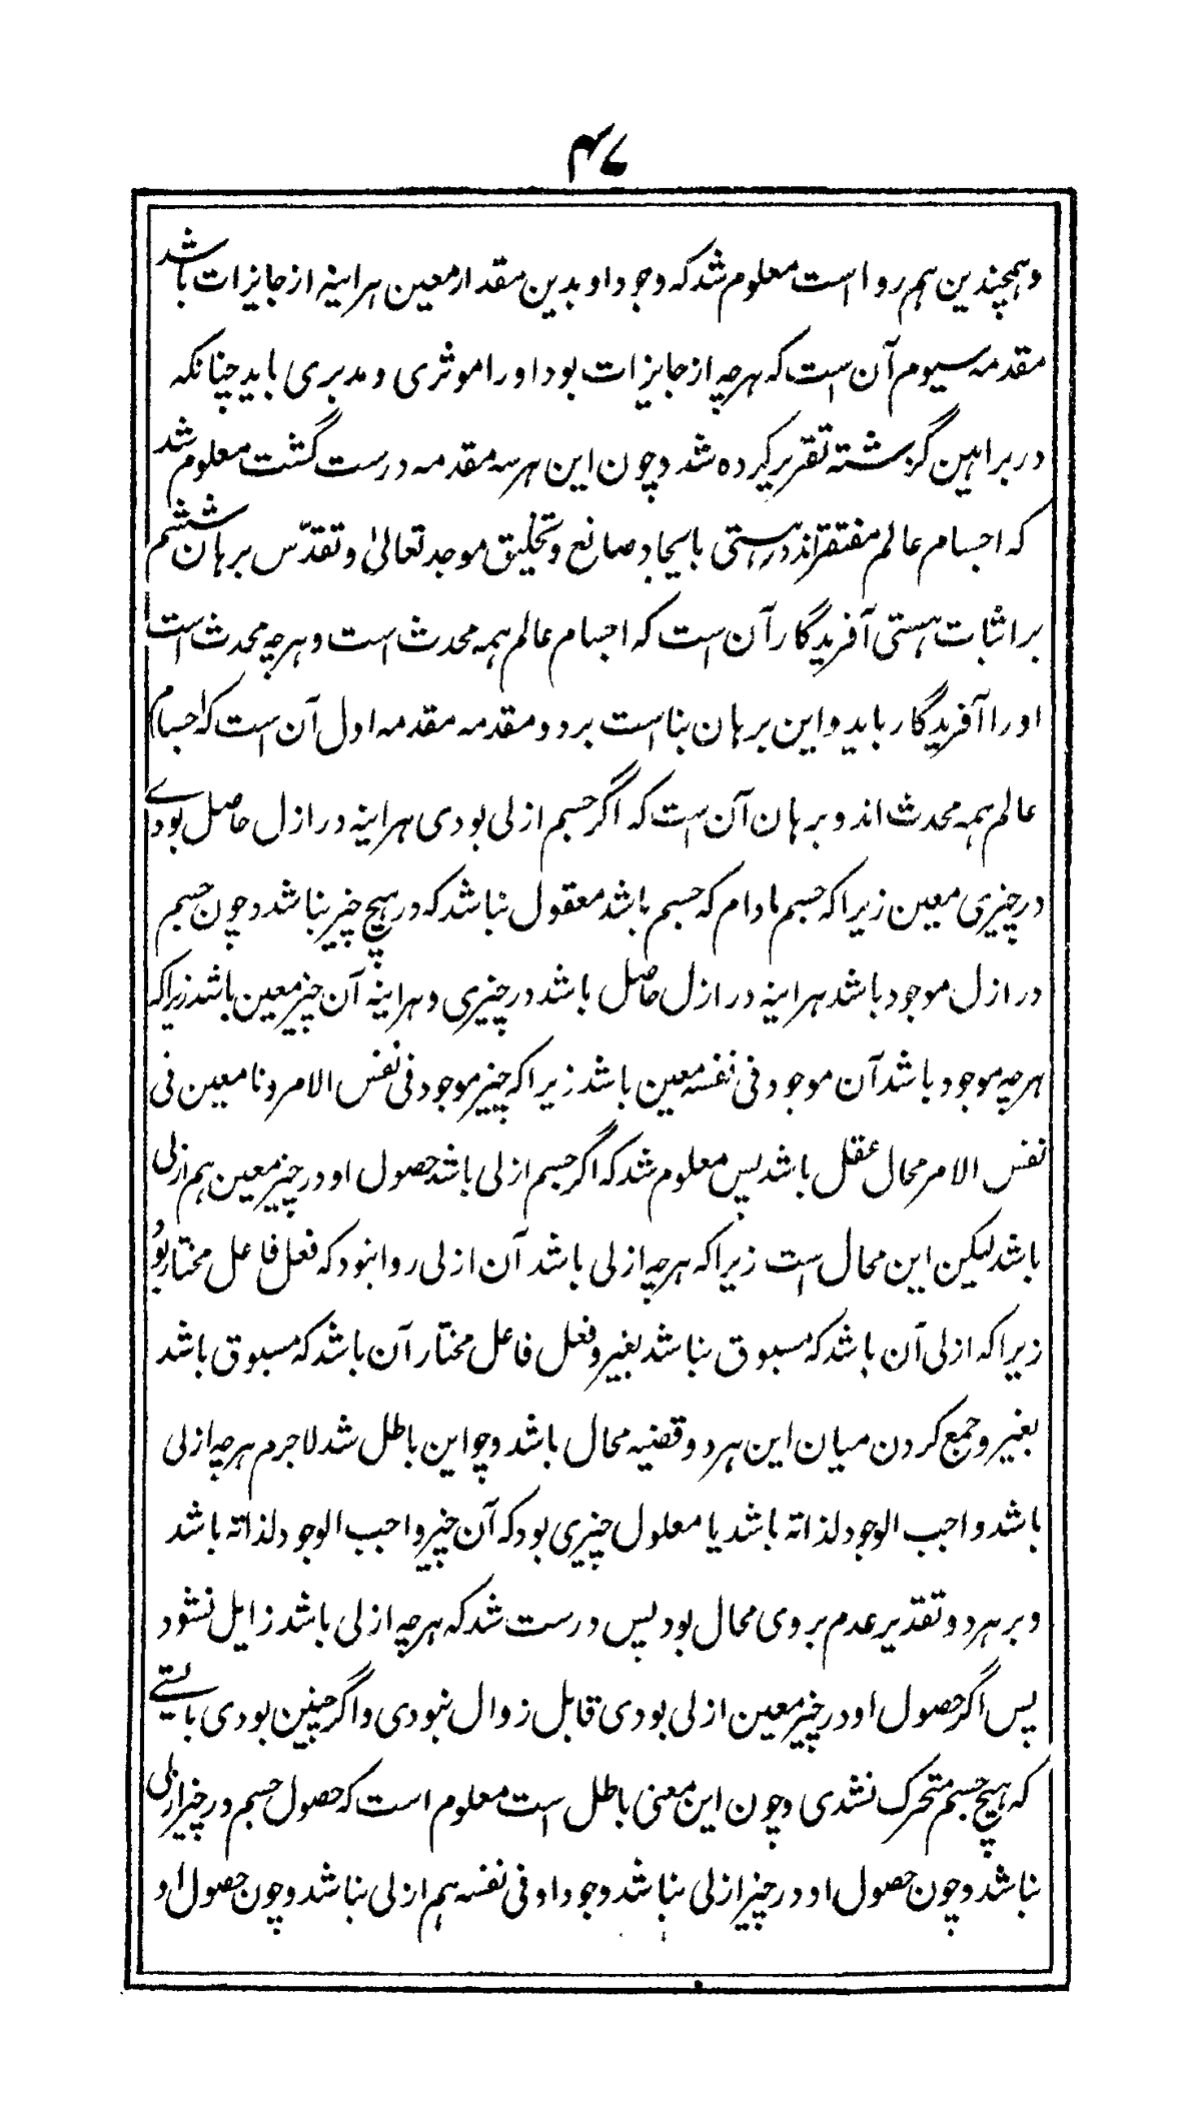 ۴۷
و همچندین هم روا است معلوم شد که وجود او بدین مقدار معین هراینه از جایزات باشد
مقدمه سیوم آن است که هرچه از جایزات بود او را موثری و مدبری باید چنانکه
در براهین گذشته تقریر کرده شد و چون این هر سه مقدمه درست گشت معلوم شد
که اجسام عالم مفتقراند در هستی بایجاد صانع و تخلیق موجد تعالیٰ و تقدّس برهان ششم
بر اثبات هستی آفریدگار آن است که اجسام عالم همه محدث است و هرچه محدث است
او را آفریدگار باید و این برهان بنا است بر دو مقدمه مقدمه اول آن است که اجسام
عالم همه محدث اند و برهان آن است که اگر جسم ازلی بودی هراینه در ازل حاصل بودے
در چیزی معین زیرا که جسم مادام که جسم باشد معقول نباشد که در هیچ چیز نباشد و چون جسم
در ازل موجود باشد هراینه در ازل حاصل باشد در چیزی و هراینه آن چیز معین باشد زیرا که
هرچه موجود باشد آن موجود فی نفسه معین باشد زیرا که چیز موجود فی نفس الامر و نامعین فی
نفس الامر محال عقل باشد پس معلوم شد که اگر جسم ازلی باشد حصول او در چیز معین هم ازلی
باشد لیکن این محال است زیرا که هرچه ازلی باشد آن ازلی روا نبود که فعل فاعل مختار بوُ
زیرا که ازلی آن باشد که مسبوق نباشد بغیر و فعل فاعل مختار آن باشد که مسبوق باشد
بغیر و جمع کردن میان این هر دو قضیه محال باشد و چو این باطل شد لاجرم هرچه ازلی
باشد واجب الوجود لذاته باشد یا معلول چیزی بود که آن چیز واجب الوجود لذاته باشد
و بر هر دو تقدیر عدم بر وی محال بود پس درست شد که هرچه ازلی باشد زایل نشود
پس اگر حصول او در چیز معین ازلی بودی قابل زوال نبودی و اگر چنین بودی بایستے
که هیچ جسم متحرک نشدی و چون این معنی باطل است معلوم است که حصول جسم در چیز ازلی
نباشد و چون حصول او در چیز ازلی نباشد وجود او فی نفسه هم ازلی نباشد و چون حصول او